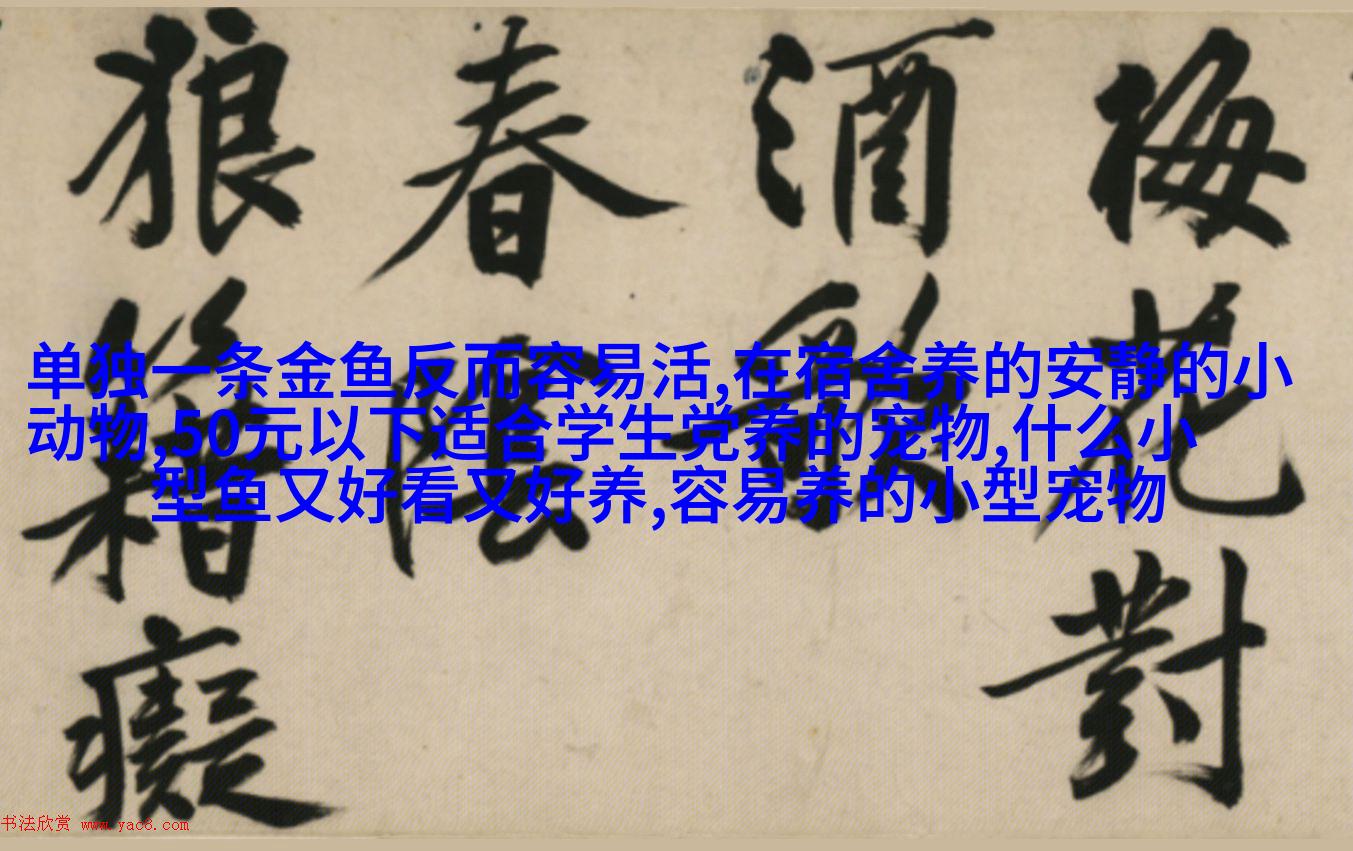 梅花對
酒
春陰
狼籍癡
单独一条金鱼反而容易活,在宿舍养的安静的小
动物,50元以下适合学生党养的宠物,什么小
型鱼又好看又好养,容易养的小型宠物
书法欣赏 www.yac8.com